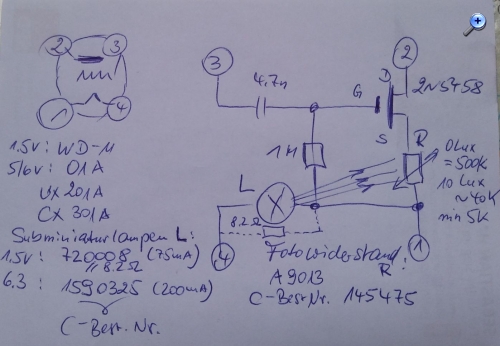 2 3
1 4
1.5V: WD-11
5/6V: 01A
UX 201A
CX 301A
Subminiaturlampen L:
1.5V: 720008 (75mA)
// 8.2Ω
6.3: 1590325 (200mA)
C-Best. Nr.
3
4.7n
2
D
G
S
2N5458
1M
R
L
8.2Ω
4
1
0Lux
=500K
10 Lux
~40K
min 5K
Fotowiderstand
R:
A9013
C-Best Nr. 145475